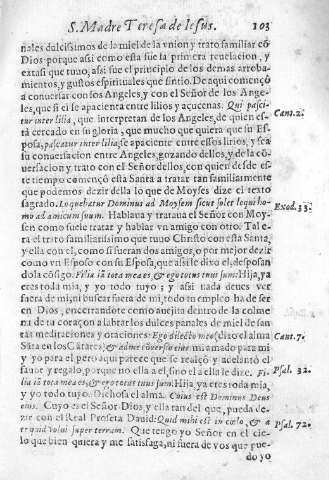 S. Madre Teresa de Iesus. 103
nales dulcissimos de la miel de la vnion y trato familiar cō
Dios porque assi como esta fue la primera reuelacion, y
extasi que tuuo, assi fue el principio de los demas arroba-
mientos, y gustos espirituales que sintio. De aqui començò
a conuersar con los Angeles, y con el Señor de los Ange-
les, que si el se apacienta entre lilios y açucenas. Qui pasci-
tur inter lilia, que interpretan de los Angeles, de quien es-
tà cercado en su gloria, que mucho que quiera que su Es-
posa, pascatur inter lilia se apaciente entre essos lirios, y sea
su conuersacion entre Angeles, gozando dellos, y de la cō-
uersacion y trato con el Señor dellos, con quien desde es-
te tiempo començò esta Santa a tratar tan familiarmente
que podemos dezir della lo que de Moyses dize el texto
sagrado. Loquebatur Dominus ad Moysem sicut solet loqui ho-
mo ad amicum suum. Hablaua y trataua el Señor con Moy-
sen como suele tratar y hablar vn amigo con otro. Tal e-
ra el trato familiarissimo que tuuo Christo con esta Santa,
y ella con el, como si fueran dos amigos, o por mejor dezir
como vn Esposo con su Esposa, que assi le dixo el, desposan
dola cōsigo. Filia iā tota mea es, & ego totus tuus sum: Hija, ya
eres toda mia, y yo todo tuyo; y assi nada deues ver
fuera de mi, ni buscar fuera de mi, todo tu empleo ha de ser
en Dios, encerrandote como auejita dentro de la colme
na de tu coraçon a labrar los dulces panales de miel de san-
tas meditaciones y oraciones: Ego dilecto meo (dixo el alma
Sāta en los Cātares) & ad me conuersio eius mi amado para mi
y yo para el pero aqui parece que se realçò y adelantò el
fauor y regalo, porque no ella a el, sino el a ella le dize. Fi-
lia iā tota mea es, & ego totus tuus sum: Hija ya eres toda mia,
y yo todo tuyo. Dichosa el alma. Cuius est Dominus Deus
eius. Cuyo es el Señor Dios, y ella tan del que, pueda de-
zir con el Real Profeta Dauid: Quid mihi est in cœlo, & a
te quid volui super terram. Que tengo yo Señor en el cie-
lo que bien quiera y me satisfaga, ni fuera de vos que pue-
do yo
Cant. 2.
Exod. 33.
Cant. 7.
Psal. 32.
Psal. 72.